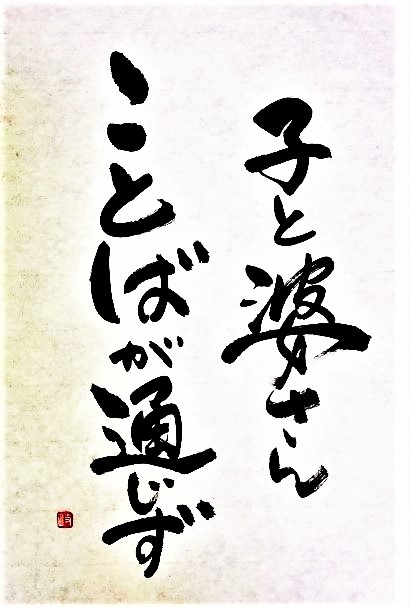 子と婆さん
ことばが通じず